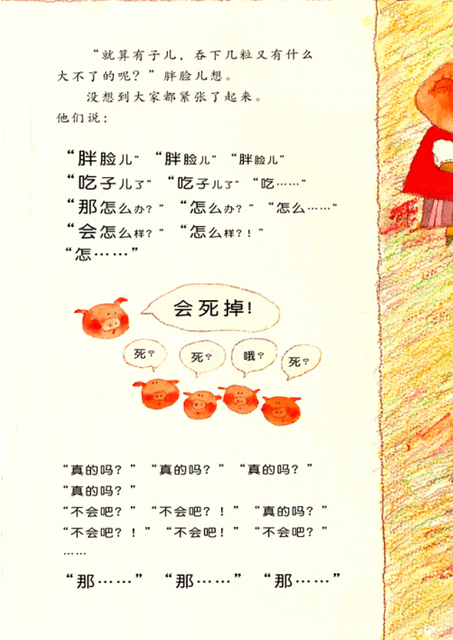 “就算有子儿，吞下几粒又有什么
大不了的呢？”胖脸儿想。
没想到大家都紧张了起来。
他们说：
“胖脸儿”“胖脸儿”“胖脸儿”
“吃子儿了”“吃子儿了”“吃……”
“那怎么办？”“怎么办？”“怎么……”
“会怎么样？”“怎么样？！”
“怎……”
会死掉！
死？ 死？ 哦？ 死？
“真的吗？”“真的吗？”“真的吗？”
“真的吗？”
“不会吧？”“不会吧？！”“真的吗？”
“不会吧？！”“不会吧！”“不会吧？”
……
“那……”“那……”“那……”